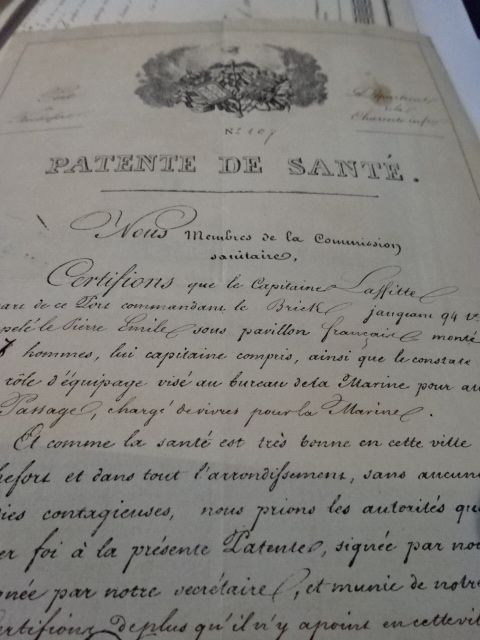 Port
de
Rochefort
Département
de la
Charente infre
No 107
PATENTE DE SANTÉ.
Nous Membres de la Commission
sanitaire,
Certifions que le Capitaine Laffitte
de ce Port commandant le Brick jaugeant 94
le Pierre Emile sous pavillon français monté
hommes, lui capitaine compris, ainsi que le constate
rôle d'équipage visé au bureau de la Marine pour
Passage, chargé de vivres pour la Marine.
Et comme la santé est très bonne en cette ville
hefort et dans tout l'arrondissement, sans aucune
ies contagieuses, nous prions les autorités qu
er foi à la présente Patente, signée par no
née par notre secrétaire, et munie de notr
ertifions de plus qu'il n'y a point en cette vil